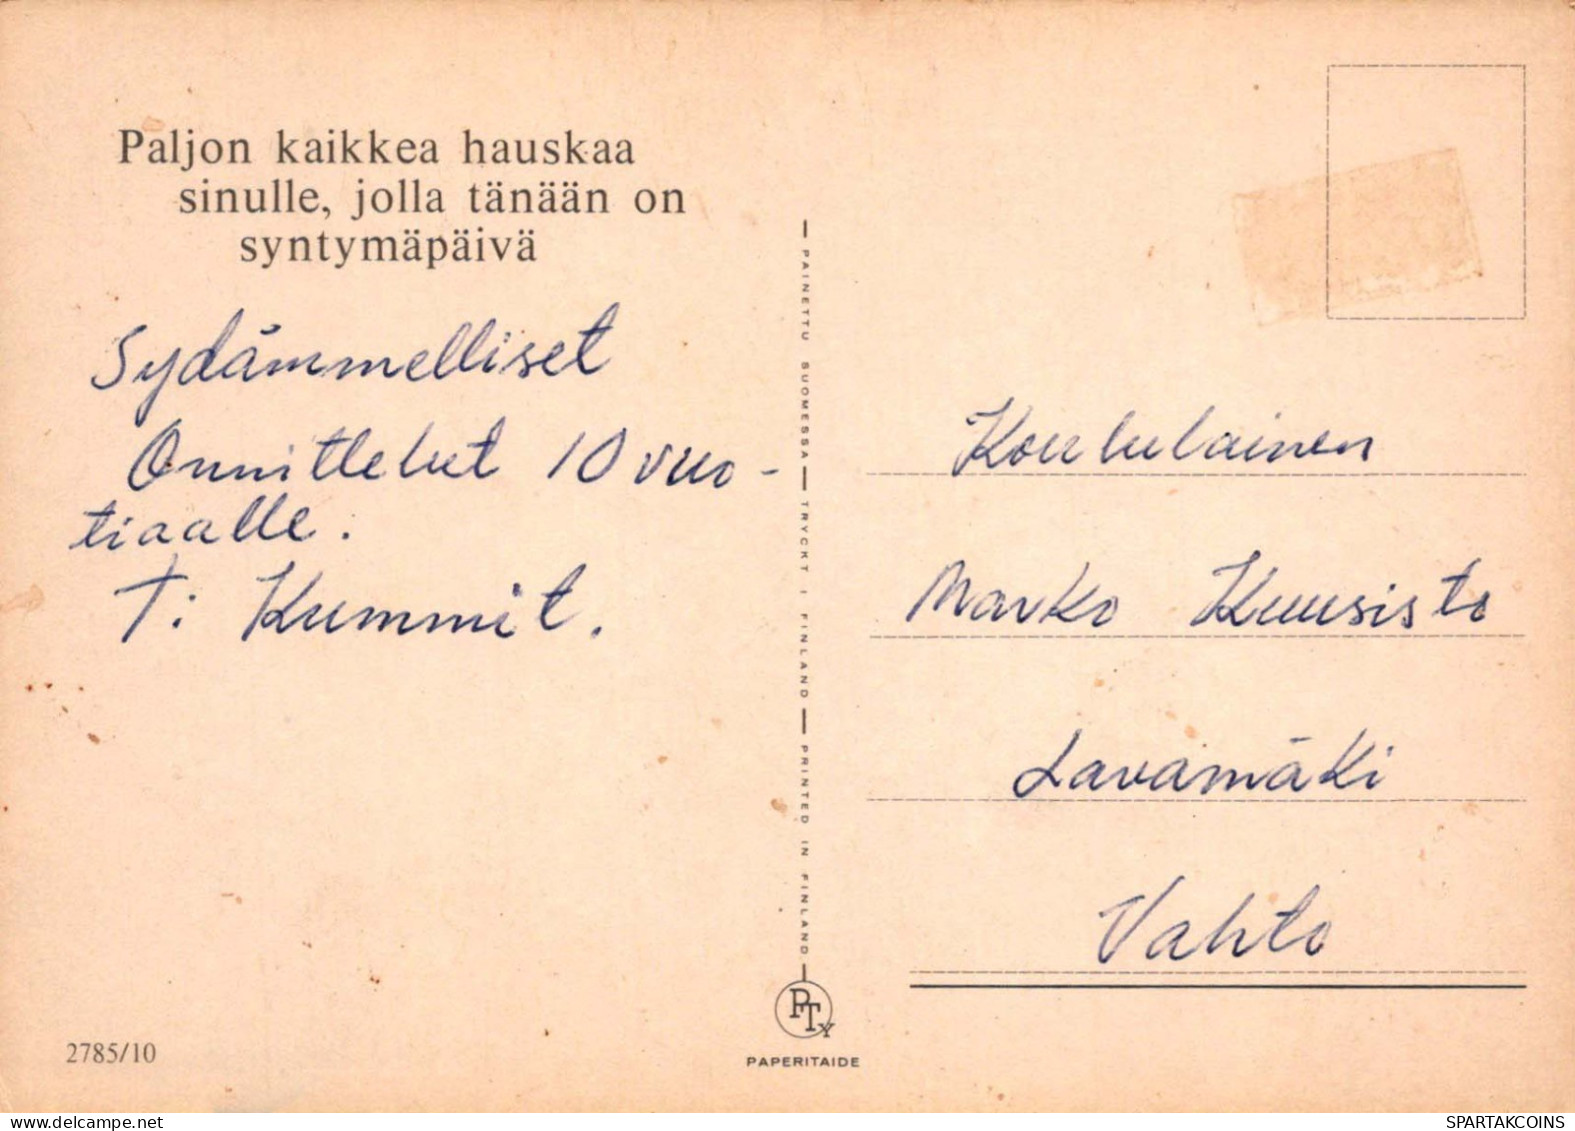 Paljon kaikkea hauskaa
sinulle, jolla tänään on
syntymäpäivä
Sydämmelliset
Onnittelut 10 vuo-
tiaalle.
T: Kummit.
2785/10
PAINETTU SUOMESSA — TRYCKT I FINLAND — PRINTED IN FINLAND
PTY
PAPERITAIDE
Koululainen
Marko Kuusisto
Lavamäki
Vahto
SPARTAKCOINS